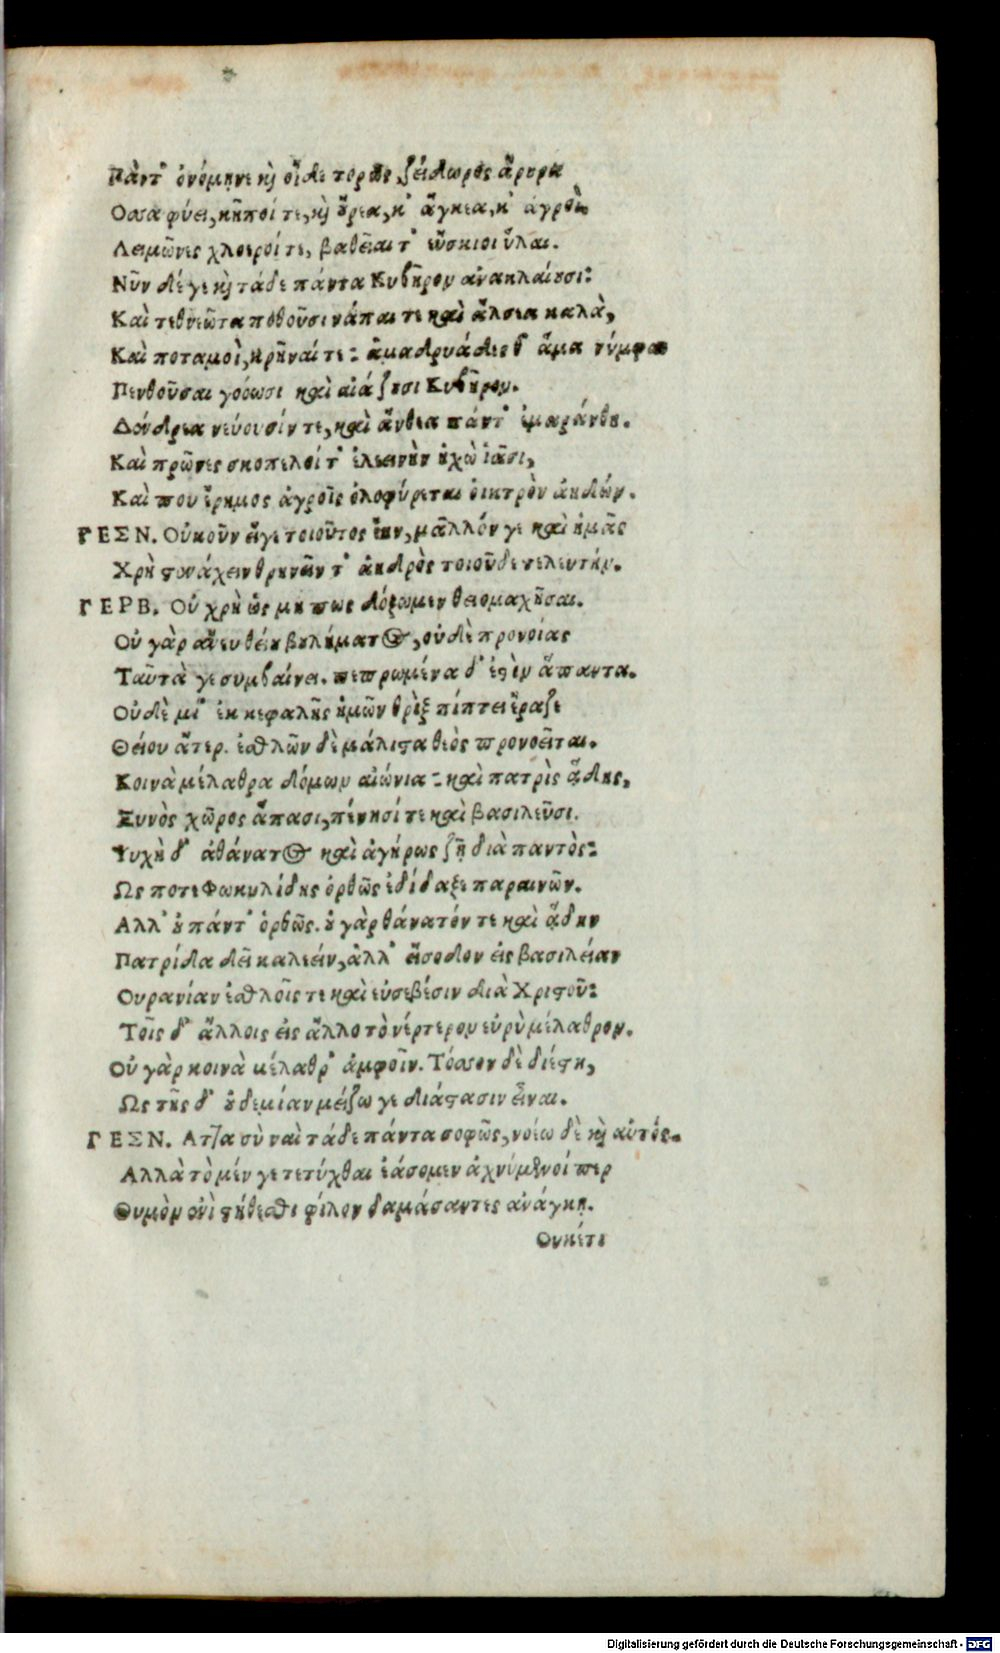 Πὰντ' ὀνόμηνε καὶ οἶδε τορῶς ζείδωρος ἄρουρα
Οσα φύει, κῆποί τε, καὶ οὔρεα, κ' ἄγκεα, κ' ἀγροὶ,
Λειμῶνες χλοεροί τε, βαθεῖαι τ' εὔσκιοι ὗλαι.
Νῦν δέ γε καὶ τάδε πάντα Κυβῆρον ἀνακλαίουσι:
Καὶ τεθνεῶτα ποθοῦσι νάπαι τε καὶ ἄλσεα καλὰ,
Καὶ ποταμοὶ, κρῆναί τε: ἁμαδρυάδες θ' ἅμα νύμφαι
Πενθοῦσαι γοόωσι καὶ αἰάζουσι Κυβῆρον.
Δένδρεα νεύουσίν τε, καὶ ἄνθεα πάντ' ἐμαράνθη.
Καὶ πρῶνες σκοπελοί τ' ἐλεεινὴν ἠχὼ ἱᾶσι,
Καὶ που ἔρημος ἀγροῖς ὀλοφύρεται οἰκτρὸν ἀηδών.
ΓΕΣΝ. Οὐκοῦν εἴγε τοιοῦτος ἔην, μᾶλλόν γε καὶ ἡμᾶς
Χρὴ στονάχειν θρηνεῖν τ' ἀνδρὸς τοιοῦδε τελευτήν.
ΓΕΡΒ. Οὐ χρὴ ὡς μή πως δόξωμεν θεομαχῆσαι.
Οὐ γὰρ ἄνευ θείου βουλήματος, οὐδὲ προνοίας
Ταῦτὰ γε συμβαίνει. πεπρωμένα δ' ἐστὶν ἅπαντα.
Οὐδὲ μί' ἐκ κεφαλῆς ἡμῶν θρὶξ πίπτει ἔραζε
Θείου ἄτερ. ἐσθλῶν δὲ μάλιστα θεὸς προνοεῖται.
Κοινὰ μέλαθρα δόμων αἰώνια: καὶ πατρὶς ᾅδης,
Ξυνὸς χῶρος ἅπασι, πένησί τε καὶ βασιλεῦσι.
Ψυχὴ δ' ἀθάνατος καὶ ἀγήρως ζῇ διὰ παντὸς:
Ως ποτε Φωκυλίδης ὀρθῶς ἐδίδαξε παραινῶν.
Αλλ' οὐ πάντ' ὀρθῶς. οὐ γὰρ θάνατόν τε καὶ ᾅδην
Πατρίδα δεῖ καλέειν, ἀλλ' εἴσοδον εἰς βασιλείαν
Ουρανίαν ἐσθλοῖς τε καὶ εὐσεβέσιν διὰ Χριστοῦ:
Τοῖς δ' ἄλλοις εἰς ἄλλο τὸ νέρτερον εὐρὺ μέλαθρον.
Οὐ γὰρ κοινὰ μέλαθρ' ἀμφοῖν. Τόσσον δὲ διέστη,
Ως τῆς δ' οὐδεμίαν μείζω γε διάστασιν εἶναι.
ΓΕΣΝ. Ατ]α σὺ ναὶ τάδε πάντα σοφῶς, νοέω δὲ καὶ αὐτός.
Αλλὰ τὸ μέν γε τετύχθαι ἐάσομεν ἀχνύμενοί περ
Θυμὸν ἐνὶ στήθεσσι φίλον δαμάσαντες ἀνάγκῃ.
Ουκέτι
Digitalisierung gefördert durch die Deutsche Forschungsgemeinschaft - DFG